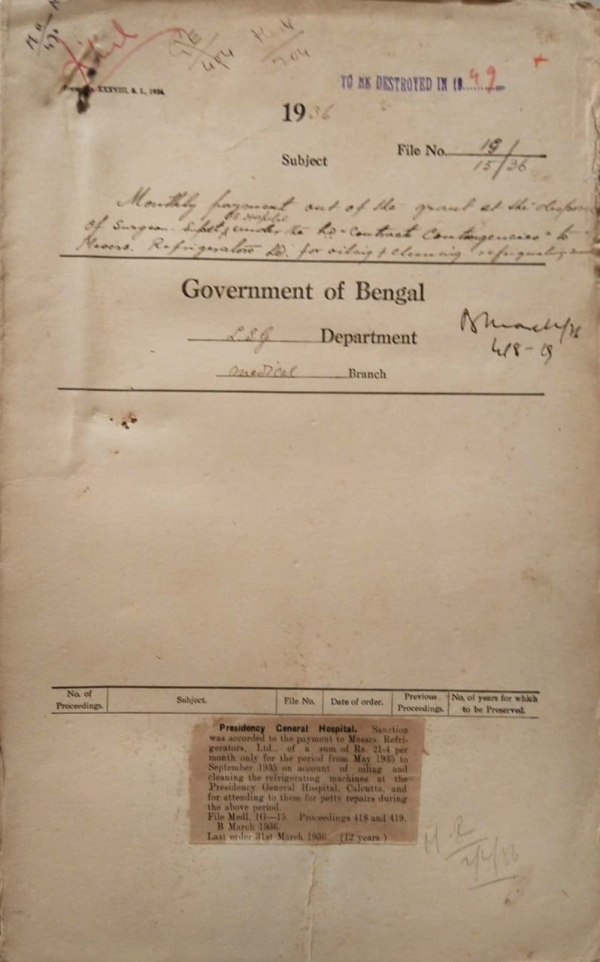 XXXVIII, S. I., 1934.
TO BE DESTROYED IN 19 49
1936
Subject
File No.
15/36
Monthly payment out of the grant at the
of Surgeon Supdt, under the contract Contingencies to
Messrs. Refrigerators Ld. for oiling & cleaning refrigerating
Government of Bengal
L.S.G Department
medical Branch
418-19
No. of Proceedings. Subject. File No. Date of order. Previous Proceedings. No. of years for which to be Preserved.
Presidency General Hospital. Sanction
was accorded to the payment to Messrs. Refri-
gerators, Ltd., of a sum of Rs. 21-4 per
month only for the period from May 1935 to
September 1935 on account of oiling and
cleaning the refrigerating machines at the
Presidency General Hospital, Calcutta, and
for attending to them for petty repairs during
the above period.
File Medl. 1G—15. Proceedings 418 and 419.
B March 1936.
Last order 31st March 1936. (12 years)